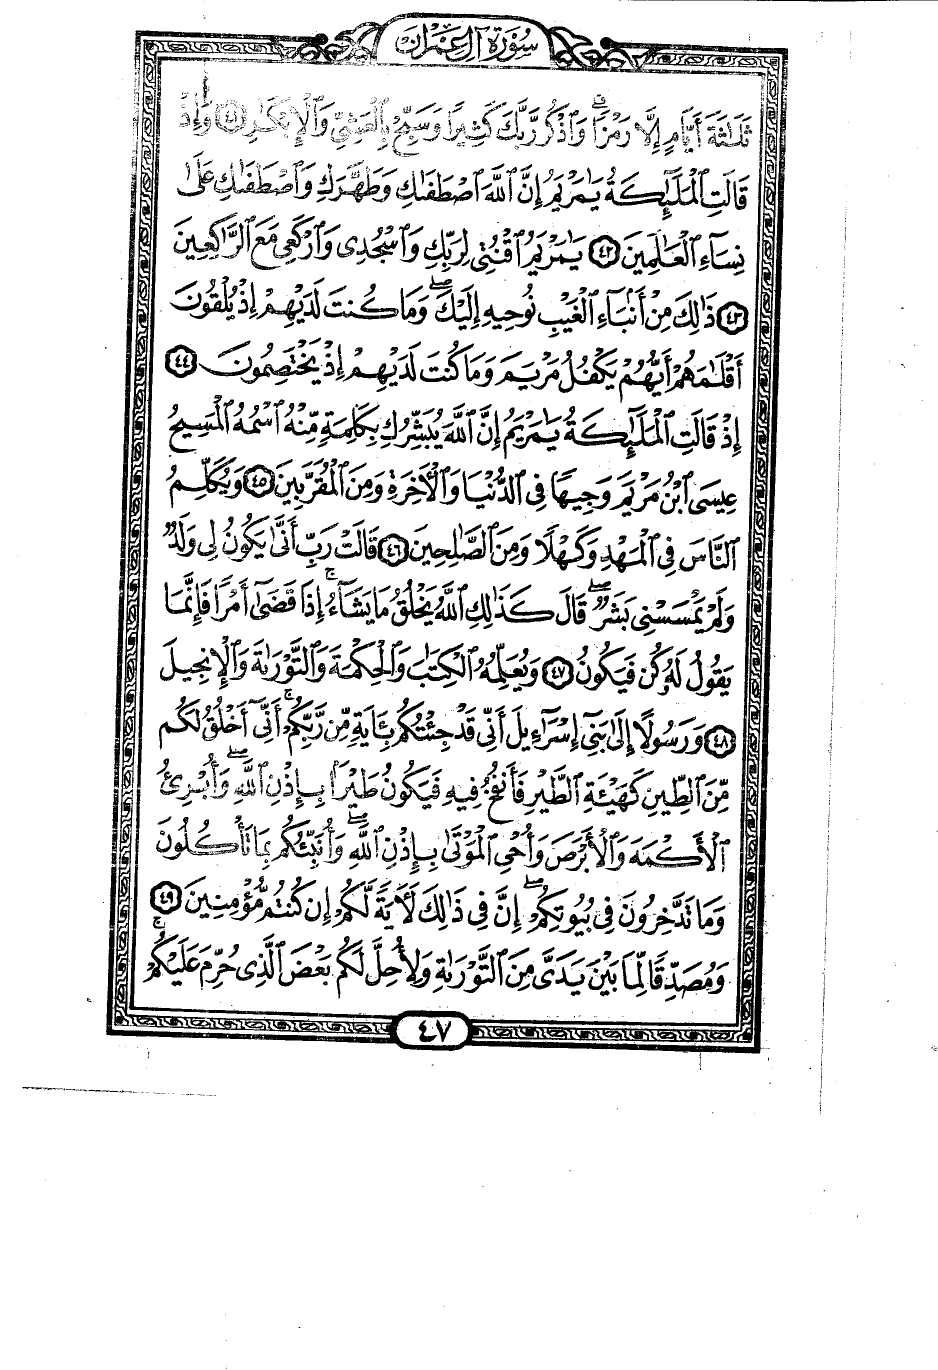 سُورَةُ آلِ عِمْرَانَ
ثَلَٰثَةَ أَيَّامٍ إِلَّا رَمْزًا ۗ وَٱذْكُر رَّبَّكَ كَثِيرًا وَسَبِّحْ بِٱلْعَشِىِّ وَٱلْإِبْكَٰرِ ٤١ وَإِذْ
قَالَتِ ٱلْمَلَٰٓئِكَةُ يَٰمَرْيَمُ إِنَّ ٱللَّهَ ٱصْطَفَىٰكِ وَطَهَّرَكِ وَٱصْطَفَىٰكِ عَلَىٰ
نِسَآءِ ٱلْعَٰلَمِينَ ٤٢ يَٰمَرْيَمُ ٱقْنُتِى لِرَبِّكِ وَٱسْجُدِى وَٱرْكَعِى مَعَ ٱلرَّٰكِعِينَ
٤٣ ذَٰلِكَ مِنْ أَنۢبَآءِ ٱلْغَيْبِ نُوحِيهِ إِلَيْكَ ۚ وَمَا كُنتَ لَدَيْهِمْ إِذْ يُلْقُونَ
أَقْلَٰمَهُمْ أَيُّهُمْ يَكْفُلُ مَرْيَمَ وَمَا كُنتَ لَدَيْهِمْ إِذْ يَخْتَصِمُونَ ٤٤
إِذْ قَالَتِ ٱلْمَلَٰٓئِكَةُ يَٰمَرْيَمُ إِنَّ ٱللَّهَ يُبَشِّرُكِ بِكَلِمَةٍ مِّنْهُ ٱسْمُهُ ٱلْمَسِيحُ
عِيسَى ٱبْنُ مَرْيَمَ وَجِيهًا فِى ٱلدُّنْيَا وَٱلْأَخِرَةِ وَمِنَ ٱلْمُقَرَّبِينَ ٤٥ وَيُكَلِّمُ
ٱلنَّاسَ فِى ٱلْمَهْدِ وَكَهْلًا وَمِنَ ٱلصَّٰلِحِينَ ٤٦ قَالَتْ رَبِّ أَنَّىٰ يَكُونُ لِى وَلَدٌ
وَلَمْ يَمْسَسْنِى بَشَرٌ ۖ قَالَ كَذَٰلِكِ ٱللَّهُ يَخْلُقُ مَا يَشَآءُ ۚ إِذَا قَضَىٰٓ أَمْرًا فَإِنَّمَا
يَقُولُ لَهُۥ كُن فَيَكُونُ ٤٧ وَيُعَلِّمُهُ ٱلْكِتَٰبَ وَٱلْحِكْمَةَ وَٱلتَّوْرَىٰةَ وَٱلْإِنجِيلَ
٤٨ وَرَسُولًا إِلَىٰ بَنِىٓ إِسْرَٰٓءِيلَ أَنِّى قَدْ جِئْتُكُم بِـَٔايَةٍ مِّن رَّبِّكُمْ ۖ أَنِّىٓ أَخْلُقُ لَكُم
مِّنَ ٱلطِّينِ كَهَيْـَٔةِ ٱلطَّيْرِ فَأَنفُخُ فِيهِ فَيَكُونُ طَيْرًۢا بِإِذْنِ ٱللَّهِ ۖ وَأُبْرِئُ
ٱلْأَكْمَهَ وَٱلْأَبْرَصَ وَأُحْىِ ٱلْمَوْتَىٰ بِإِذْنِ ٱللَّهِ ۖ وَأُنَبِّئُكُم بِمَا تَأْكُلُونَ
وَمَا تَدَّخِرُونَ فِى بُيُوتِكُمْ ۚ إِنَّ فِى ذَٰلِكَ لَأَيَةً لَّكُمْ إِن كُنتُم مُّؤْمِنِينَ ٤٩
وَمُصَدِّقًا لِّمَا بَيْنَ يَدَىَّ مِنَ ٱلتَّوْرَىٰةِ وَلِأُحِلَّ لَكُم بَعْضَ ٱلَّذِى حُرِّمَ عَلَيْكُمْ ۚ
٤٧